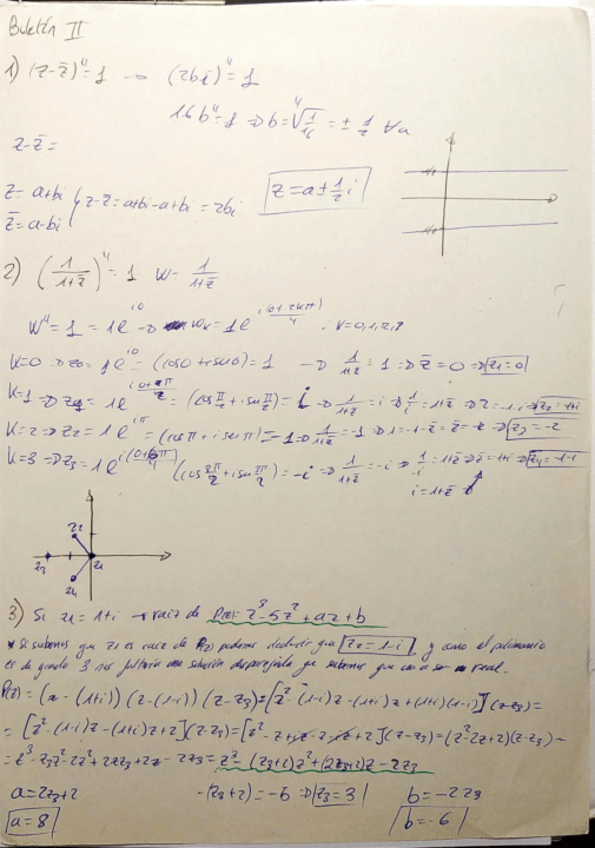 Boletín II
1) (z-z̄)⁴=1 → (2bi)⁴=1
16b⁴=1 ⇒ b=⁴√(1/16) = ± 1/2 ∀a
z-z̄=
z=a+bi
z̄=a-bi
z-z̄=a+bi-a+bi=2bi
z=a±1/2 i
2) (1/(1+z̄))⁴=1 W=1/(1+z̄)
W⁴=1=1e^{i0} ⇒ W_k=1e^{i(0+2kπ)/4} ; k=0,1,2,3
K=0 ⇒ z₀=1e^{i0}=(cos0+isen0)=1 → 1/(1+z̄)=1 ⇒ z̄=0 ⇒ z₁=0
K=1 ⇒ =(cos π/2+isen π/2)=i ⇒ 1/(1+z̄)=i ⇒ 1/i=1+z̄ ⇒ z̄=-1-i ⇒ z₂=-1+i
K=2 ⇒ z₂=1e^{iπ}=(cosπ+isenπ)=-1 ⇒ 1/(1+z̄)=-1 ⇒ 1=-1-z̄ ⇒ z₃=-2
K=3 ⇒ z₃=1e (cos 3π/2+isen 3π/2)=-i ⇒ 1/(1+z̄)=-i ⇒ 1/-i=1+z̄ ⇒ z̄=-1+i ⇒ z₄=-1-i
i=1+z̄
z₂
z₃
z₁
z₄
3) Si z₁=1+i → raíz de P(z)=z³-5z²+az+b
* Si sabemos que z₁ es raíz de P(z) podemos deducir que z₂=1-i, y como el polinomio
es de grado 3 nos faltaría una solución que sabemos que va a ser real.
P(z)=(z-(1+i))(z-(1-i))(z-z₃)=[z²-(1-i)z-(1+i)z+(1+i)(1-i)](z-z₃)=
=[z²-(1-i)z-(1+i)z+2](z-z₃)=[z²-z+iz-z-iz+2](z-z₃)=(z²-2z+2)(z-z₃)=
=z³-z₃z²-2z²+2zz₃+2z-2z₃=z³-(z₃+2)z²+(2z₃+2)z-2z₃
a=2z₃+2 -(z₃+2)=-5 ⇒ z₃=3 b=-2z₃
a=8 b=-6